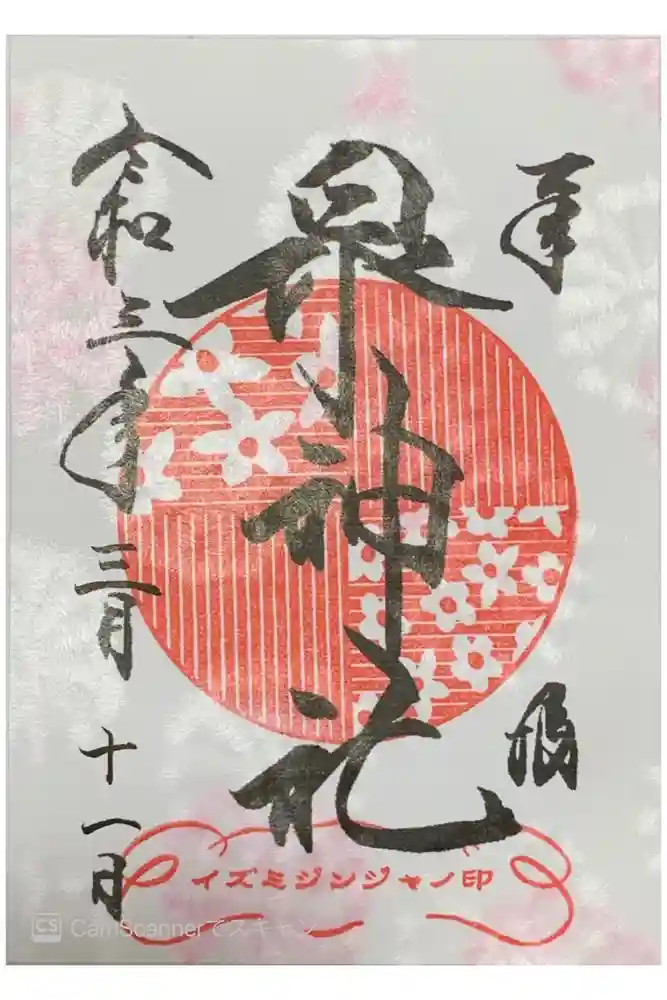 奉拝
泉神社
令和三年三月十一日
イズミジンジャノ印
CS CamScannerでスキャン